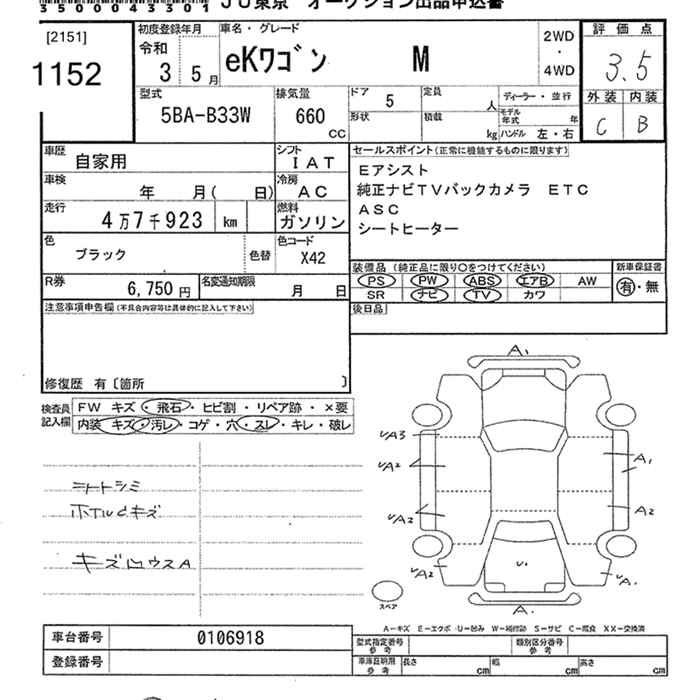 3500043301 JU東京 オークション出品申込書
[2151]
1152
初度登録年月
令和
3 5月
車名・グレード
eKワゴン M
2WD
・
4WD
評価点
3.5
外装 内装
C B
型式
5BA-B33W
排気量
660
CC
ドア 5
形状
定員 人
積載 kg
ディーラー・並行
モデル年式 年
ハンドル 左・右
車歴 自家用
シフト IAT
車検 年 月( 日)
冷房 AC
走行 4万7千923 km
燃料 ガソリン
色 ブラック
色替
色コード X42
R券 6,750 円
名変通知期限 月 日
セールスポイント(正常に機能するものに限ります)
Eアシスト
純正ナビTVバックカメラ ETC
ASC
シートヒーター
装備品 (純正品に限り○をつけてください)
PS PW ABS エアB AW
SR ナビ TV カワ
新車保証書
有・無
後日品
注意事項申告欄(不具合内容等は具体的に記入して下さい)
修復歴 有〔箇所 〕
検査員
記入欄
FW キズ・飛石・ヒビ割・リペア跡・×要
内装 キズ・汚レ・コゲ・穴・スレ・キレ・破レ
シートシミ
ホイルキズ
A1
A3
A2
A2
A2
A1
A2
A
U1
A
スペア
A-キズ E-エクボ U-凹み W-補修跡 S-サビ C-腐食 XX-交換済
車台番号 0106918
登録番号
型式指定番号
参考
類別区分番号
参考
車庫証明用
参考
長さ cm 幅 cm 高さ cm